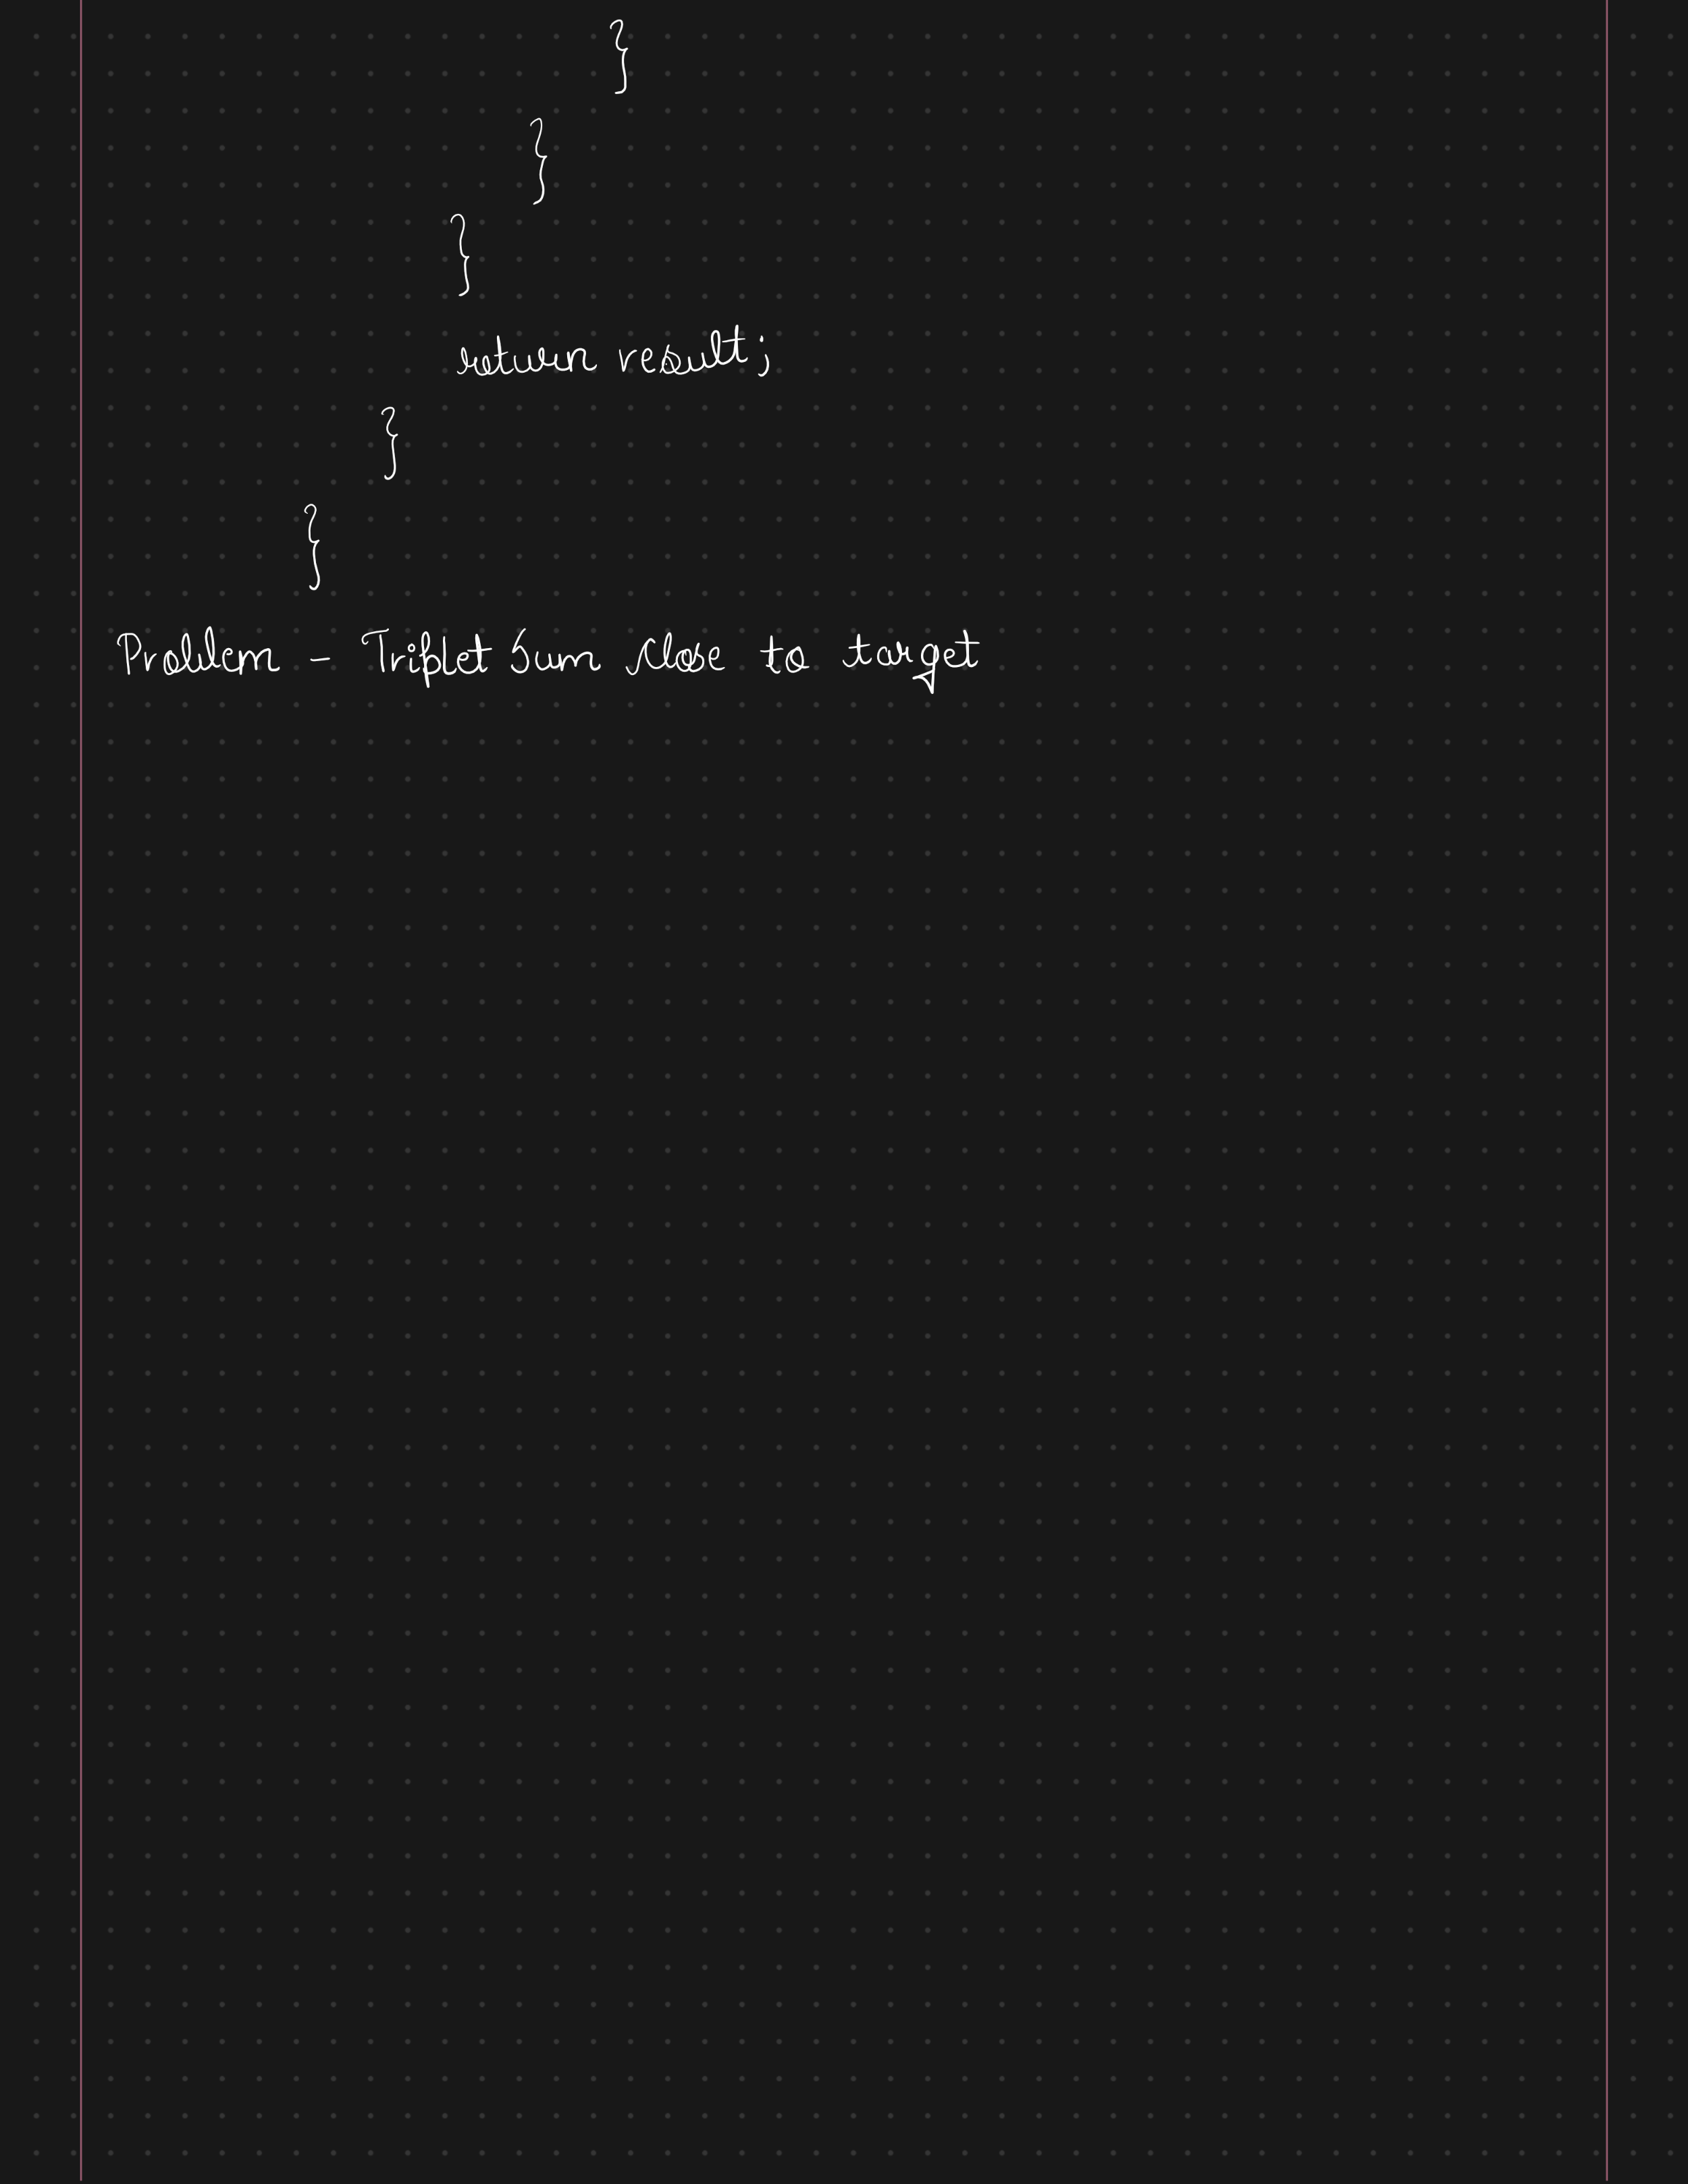 }
}
}
return result;
}
}
Problem - Triplet Sum Close to target